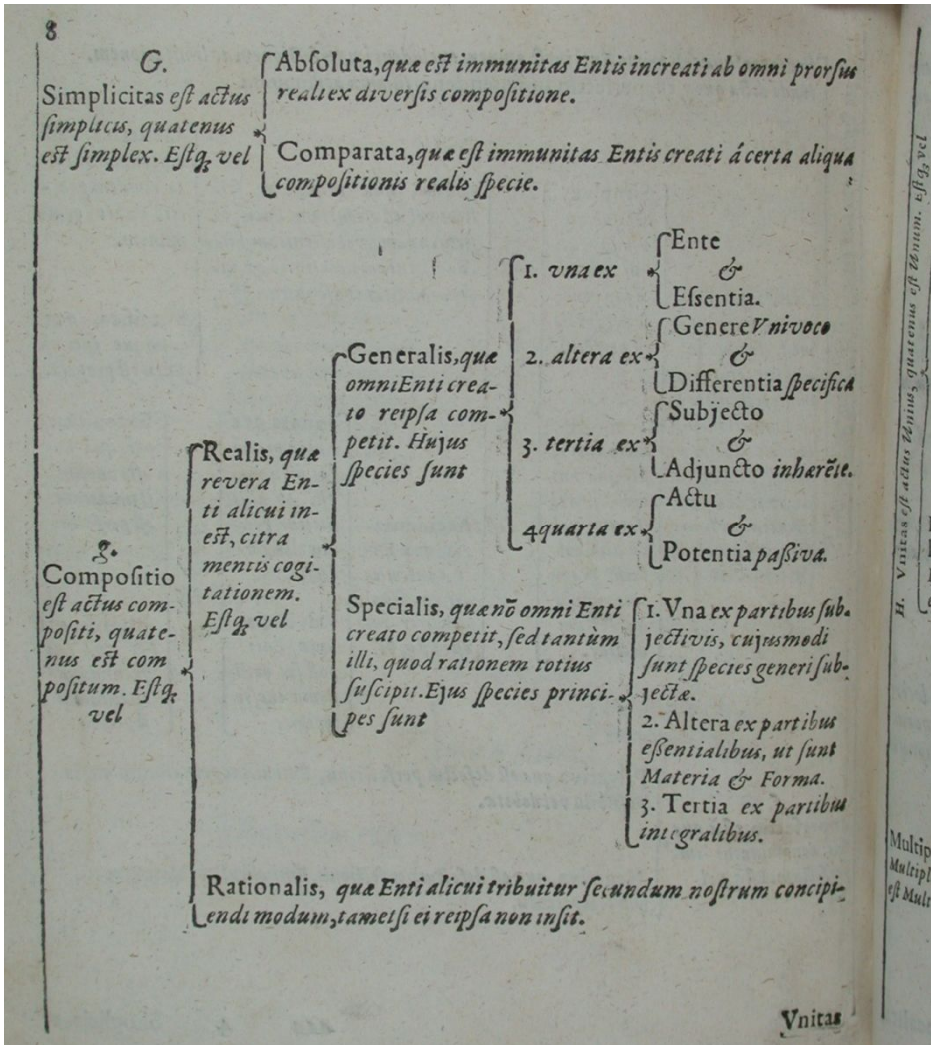 8
G.
Simplicitas est actus
simplicis, quatenus
est simplex. Estq; vel
Absoluta, quæ est immunitas Entis increati ab omni prorsus
reali ex diversis compositione.
Comparata, quæ est immunitas Entis creati á certa aliqua
compositionis realis specie.
g.
Compositio
est actus com-
positi, quate-
nus est com
positum. Estq;
vel
Realis, quæ
revera En-
ti alicui in-
est, citra
mentis cogi-
tationem.
Estq; vel
Generalis, quæ
omni Enti crea-
to reipsa com-
petit. Hujus
species sunt
1. vna ex
Ente
&
Essentia.
2. altera ex
Genere Vnivoco
&
Differentia specifica
3. tertia ex
Subjecto
&
Adjuncto inhærẽte.
4 quarta ex
Actu
&
Potentia passiva.
Specialis, quæ nõ omni Enti
creato competit, sed tantùm
illi, quod rationem totius
suscipit. Ejus species princi-
pes sunt
1. Vna ex partibus sub-
jectivis, cujusmodi
sunt species generi sub-
jectæ.
2. Altera ex partibus
essentialibus, ut sunt
Materia & Forma.
3. Tertia ex partibus
integralibus.
Rationalis, quæ Enti alicui tribuitur secundum nostrum concipi-
endi modum, tametsi ei reipsa non insit.
Vnitas
H. Vnitas est actus Unius, quatenus est Unum. Estq; vel
Multip
Multipl
est Mult